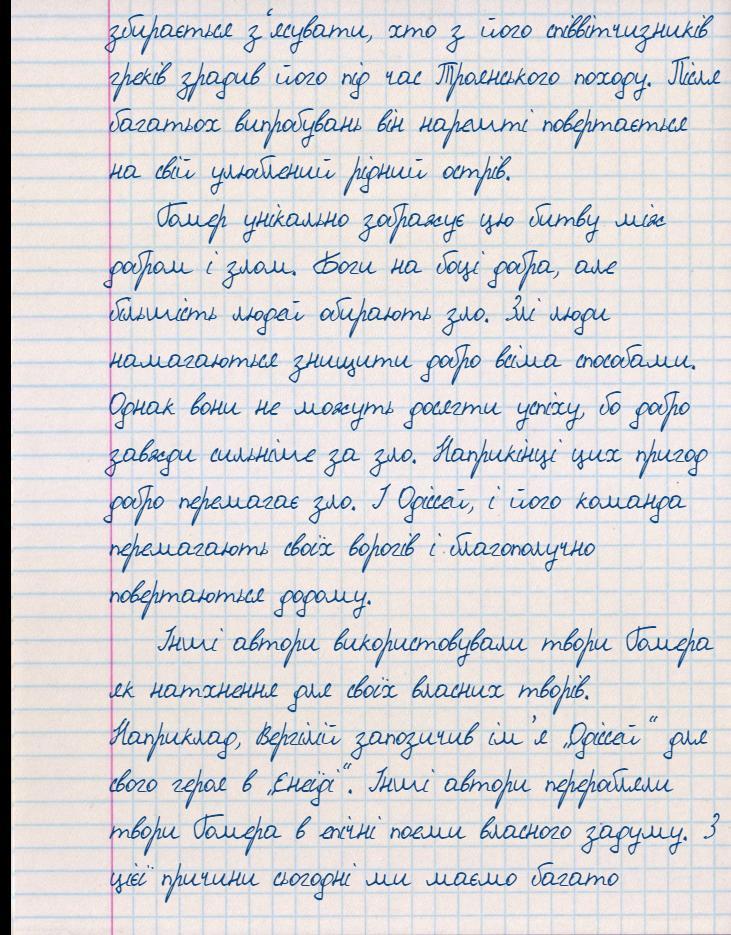 збирається з'ясувати, хто з його співвітчизників
греків зрадив його під час Троянського походу. Після
багатьох випробувань він нарешті повертається
на свій улюблений рідний острів.
Гомер унікально зображує цю битву між
добром і злом. Боги на боці добра, але
більшість людей обирають зло. Злі люди
намагаються знищити добро всіма способами.
Однак вони не можуть досягти успіху, бо добро
завжди сильніше за зло. Наприкінці цих пригод
добро перемагає зло. І Одіссей, і його команда
перемагають своїх ворогів і благополучно
повертаються додому.
Інші автори використовували твори Гомера
як натхнення для своїх власних творів.
Наприклад, Вергілій запозичив ім'я „Одіссей“ для
свого героя в „Енеїді“. Інші автори переробляли
твори Гомера в епічні поеми власного задуму. З
цієї причини сьогодні ми маємо багато